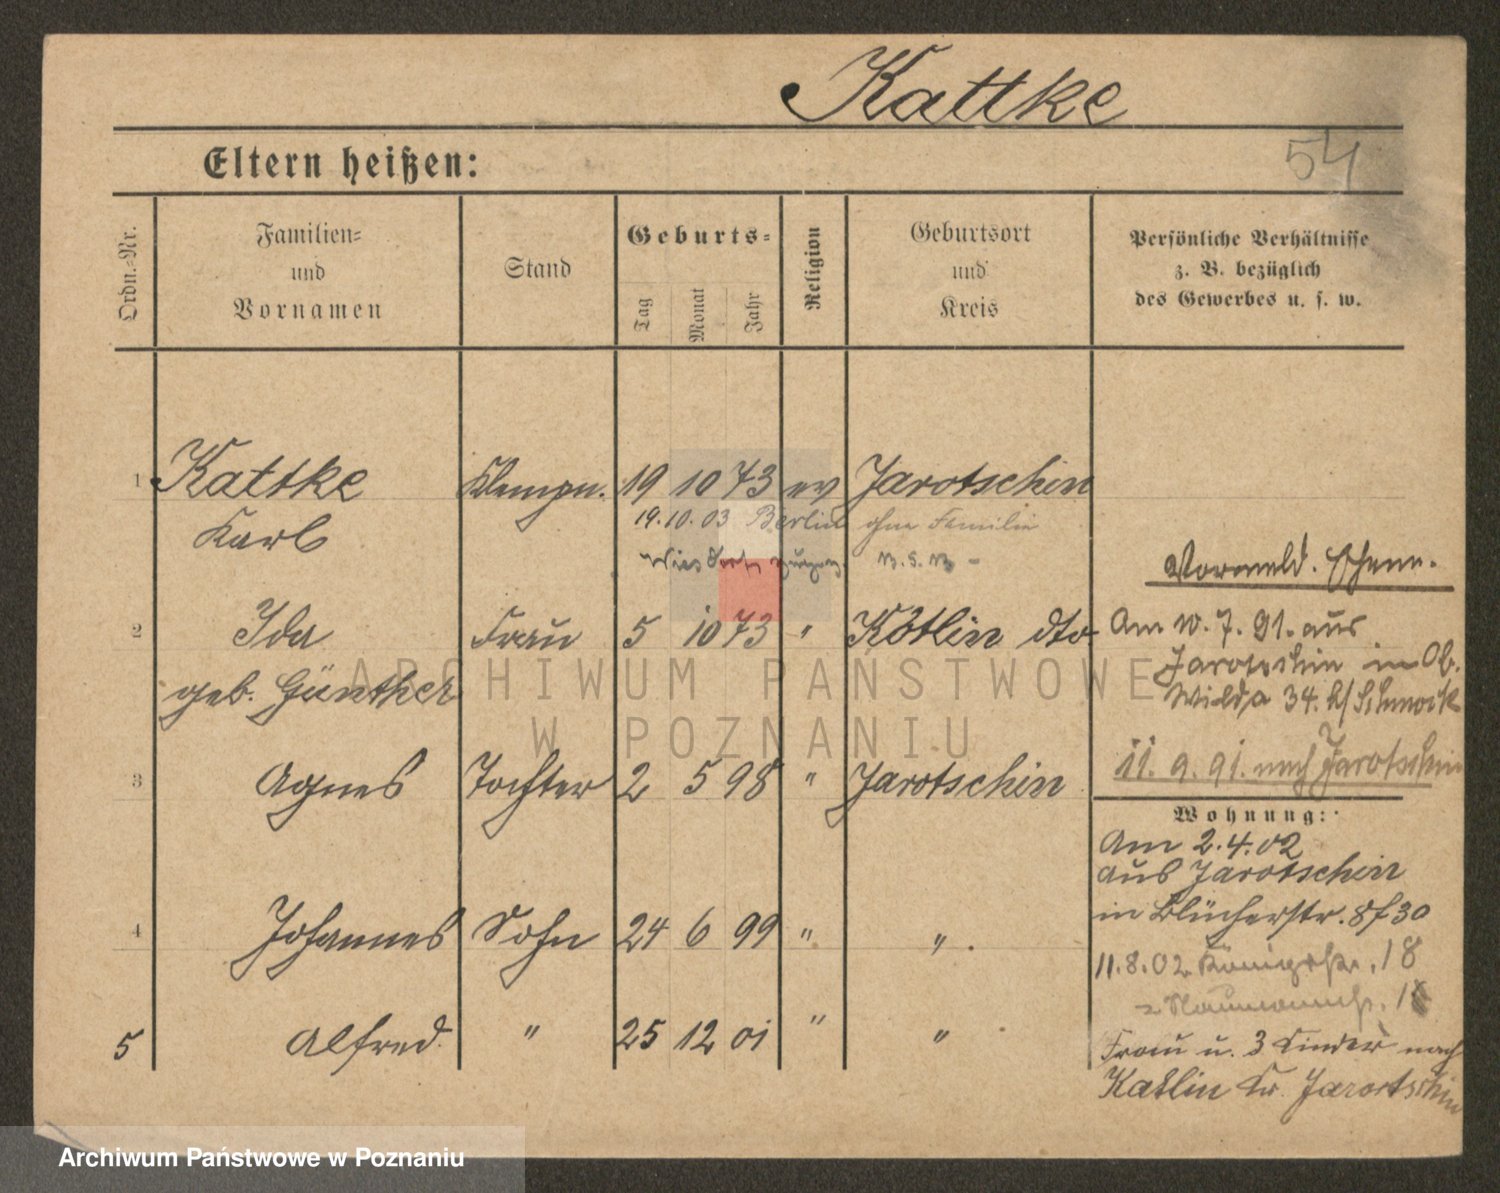 Kattke
54
Eltern heißen:
Ordn.-Nr.
Familien-
und
Vornamen
Stand
Geburts-
Tag
Monat
Jahr
Religion
Geburtsort
und
Kreis
Persönliche Verhältnisse
z. B. bezüglich
des Gewerbes u. s. w.
1 Kattke Klempn. 19 10 73 ev Jarotschin
Karl
19.10.03 Berlin ohne Familie
Vormeld.
2 Ida Frau 5 10 73 " Kotlin dto
geb. Günther
Am 10. 7. 91. aus
Jarotschin in Ob.
Wilda 34. b/ Schmock
11. 9. 91. nach Jarotschin
3 Agnes Tochter 2 5 98 " Jarotschin
Wohnung:
Am 2.4.02
aus Jarotschin
in Blücherstr. 8f 30
4 Johannes Sohn 24 6 99 " " .
11.8.02 Königstr. 18
= Naumannstr.
5 Alfred " 25 12 01 " "
Frau u. 3 Kinder nach
Katlin Kr. Jarotschin
ARCHIWUM PAŃSTWOWE
W POZNANIU
Archiwum Państwowe w Poznaniu